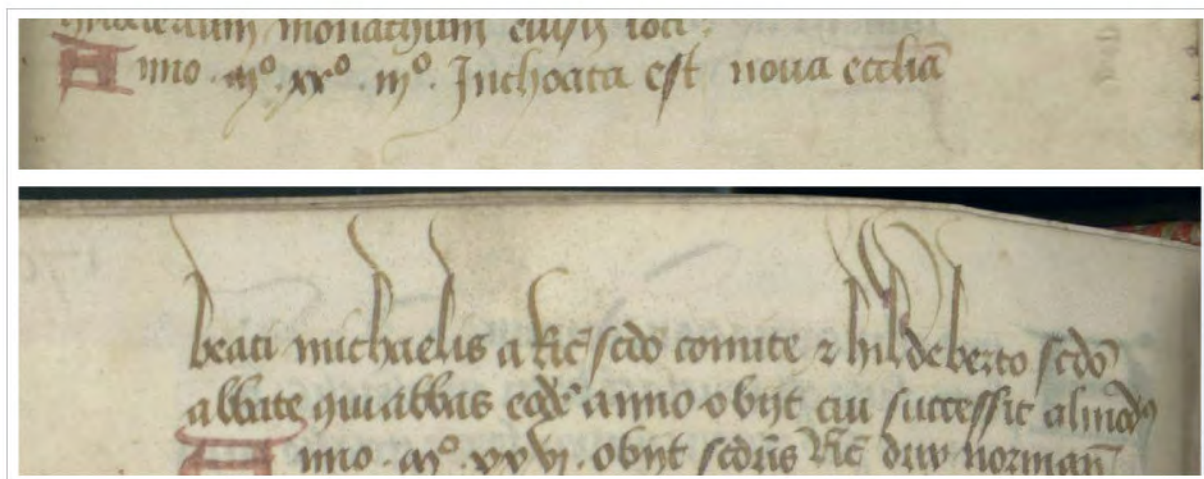 monachum eiusd loci.
Anno . mº . xxº . iijº . Inchoata est noua ecclīa
beati michaelis a Ric̄ scdo comite ⁊ hildeberto scdō
abbate qui abbas eodē anno obijt cui successit almodꝰ
Anno . mº . xxvj . obijt scdūs Ric̄ dux norman̄